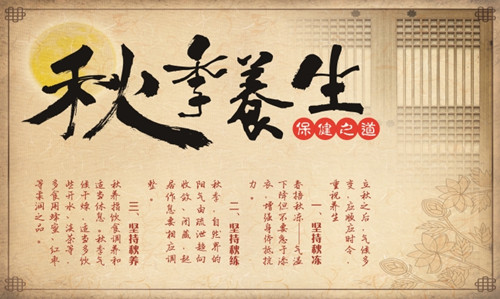 秋季養生
保健之道
立秋之后，气候多
变，应顺应时令，
重视养生
一、坚持秋冻
春捂秋冻——气温
下降但不要急于添
衣，增强身体抵抗
力。
二、坚持秋练
秋季，自然界的
阳气由疏泄趋向
收敛、闭藏，起
居作息要相应调
整。
三、坚持秋养
秋养指饮食调和
适当休息。秋季气
候干燥，适当多饮
些开水、淡茶等，
多食用蜂蜜、红枣
等柔润之品。